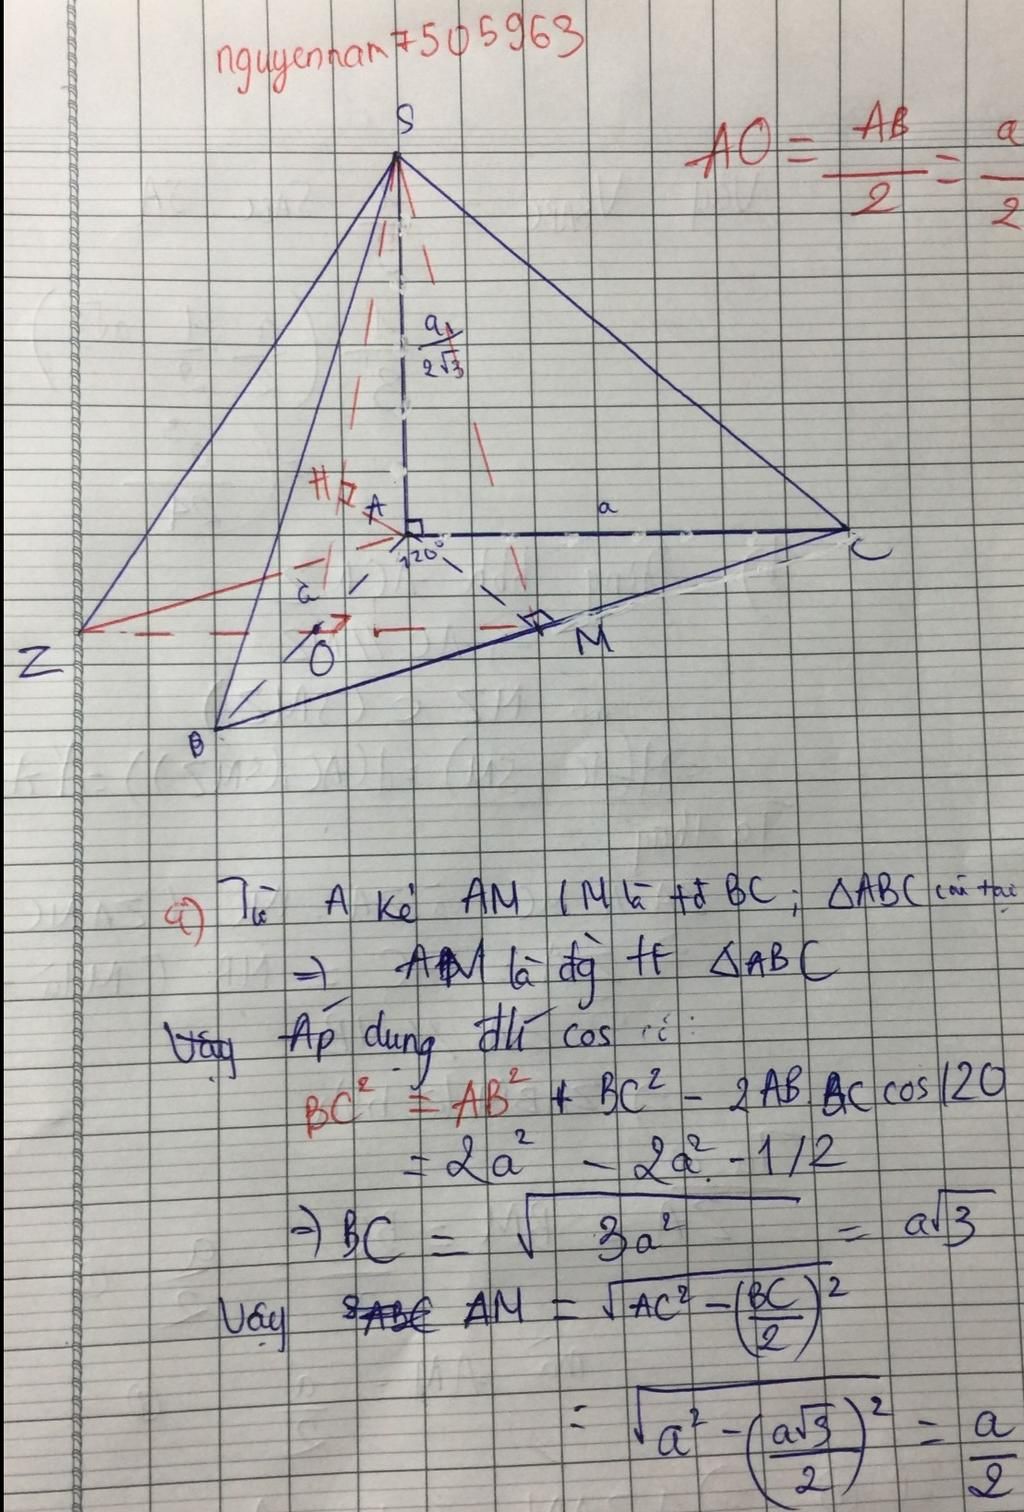 nguyennam7505963
S
AO = AB/2 = a/2
a/2√3
H
A
a
120°
C
a
Z
O
M
B
a) Từ A kẻ AM (M là tđ BC; ΔABC cân tại
=> AM là đg tt ΔABC
Áp dụng đlí cos
BC² = AB² + BC² - 2AB AC cos120
= 2a² - 2a² . -1/2
=> BC = √3a² = a√3
Vậy AM = √AC² - (BC/2)²
= √a² - (a√3/2)² = a/2